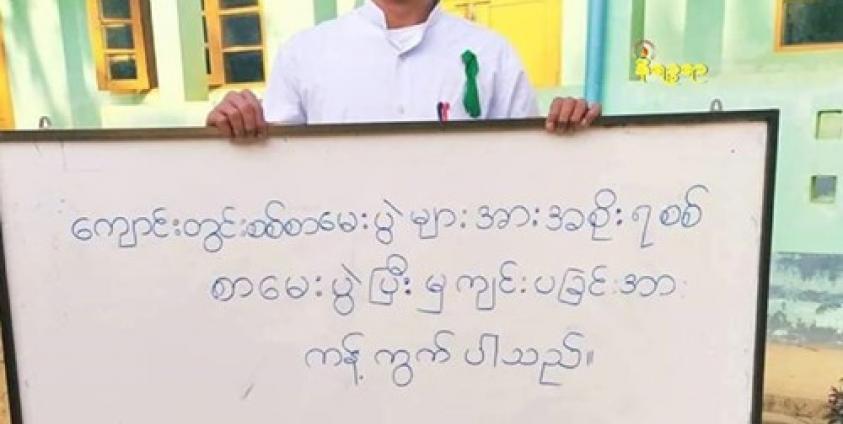 ကျောင်းတွင်းစစ်စာမေးပွဲ များအားအစိုးရစစ်
စာမေးပွဲပြီးမှကျင်းပခြင်းအား
ကန့်ကွက်ပါသည်။